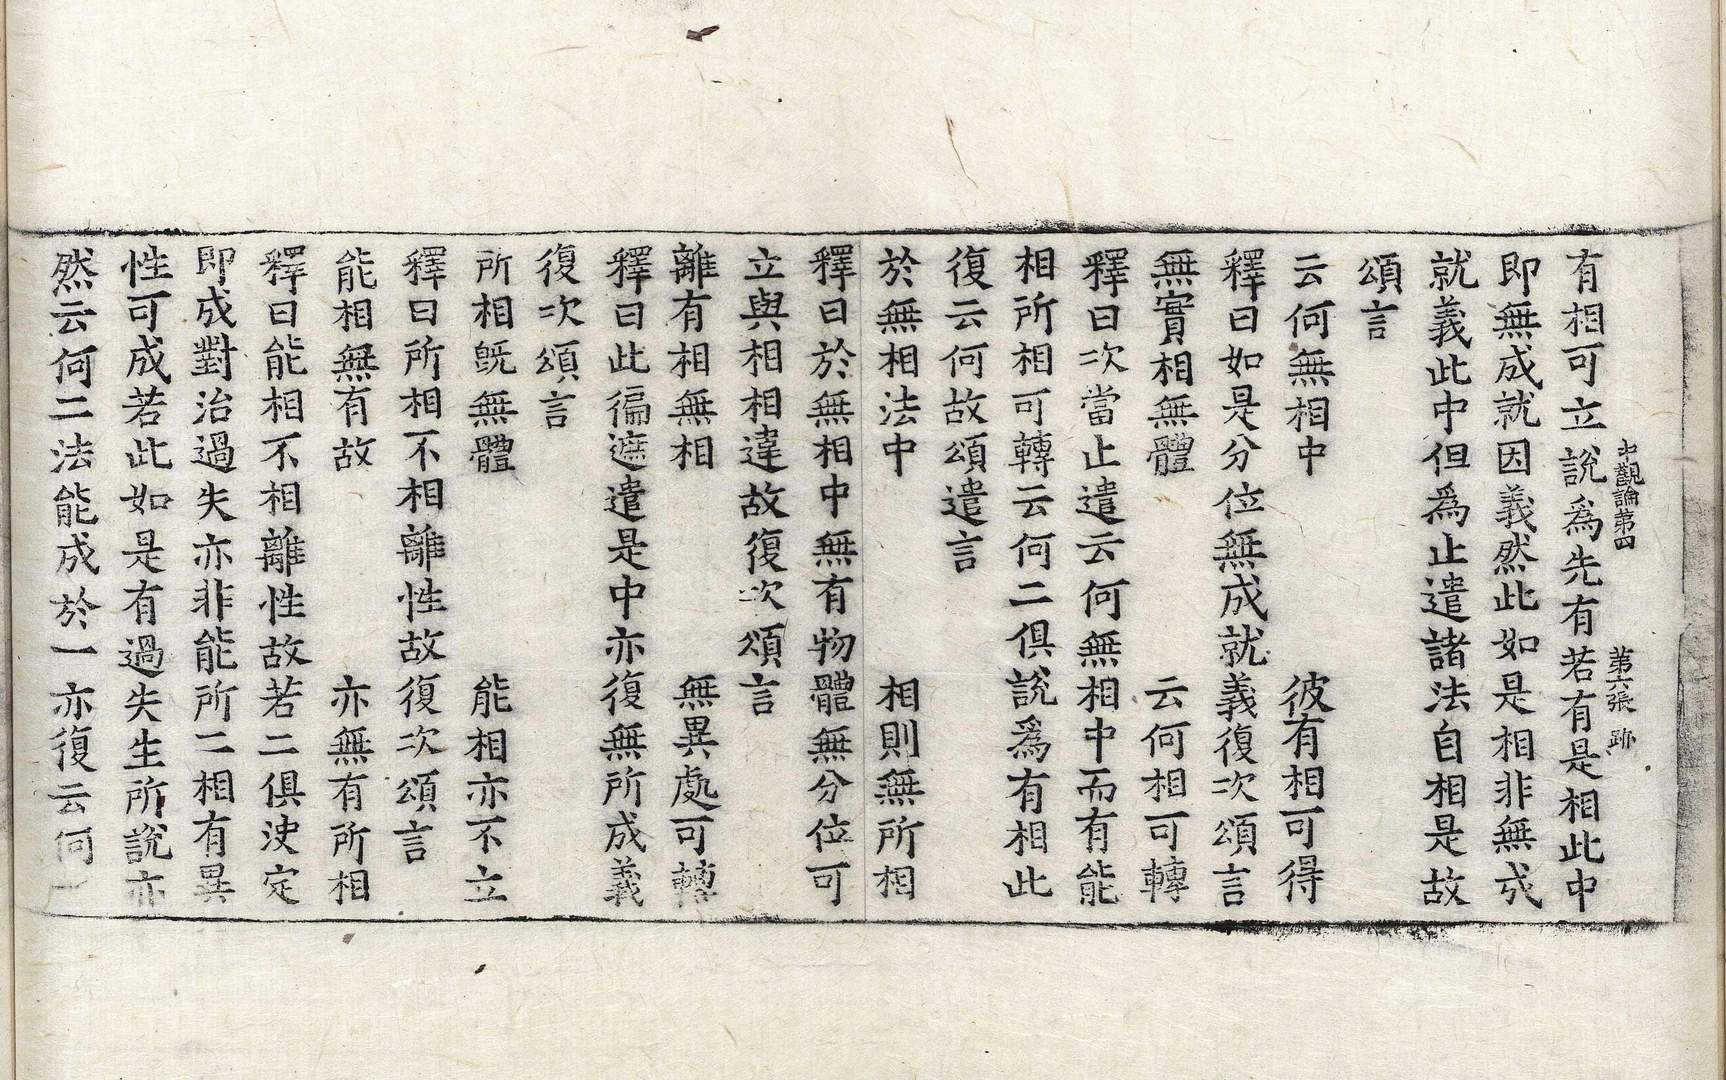 中觀論第四　第六張　跡
有相可立說爲先有若有是相此中
即無成就因義然此如是相非無成
就義此中但爲止遣諸法自相是故
頌言
云何無相中　彼有相可得
釋曰如是分位無成就義復次頌言
無實相無體　云何相可轉
釋曰次當止遣云何無相中而有能
相所相可轉云何二俱說爲有相此
復云何故頌遣言
於無相法中　相則無所相
釋曰於無相中無有物體無分位可
立與相相違故復次頌言
離有相無相　無異處可轉
釋曰此徧遮遣是中亦復無所成義
復次頌言
所相旣無體　能相亦不立
釋曰所相不相離性故復次頌言
能相無有故　亦無有所相
釋曰能相不相離性故若二俱決定
即成對治過失亦非能所二相有異
性可成若此如是有過失生所說亦
然云何二法能成於一亦復云何一